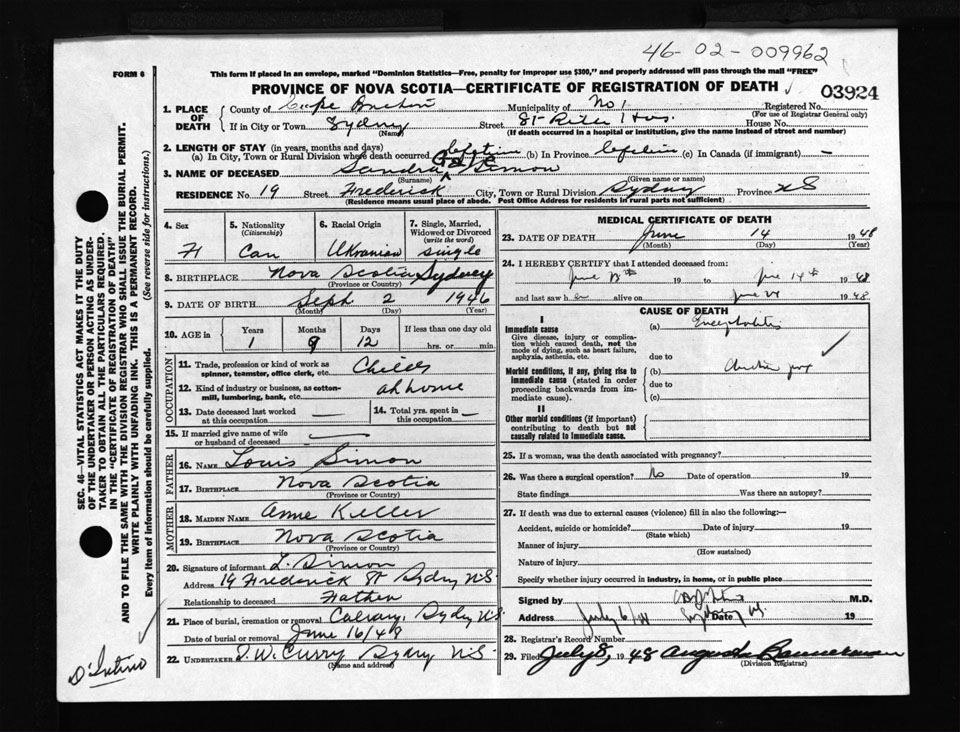 46-02-009962
FORM 6
This form if placed in an envelope, marked "Dominion Statistics—Free, penalty for improper use $300," and properly addressed will pass through the mail "FREE"
PROVINCE OF NOVA SCOTIA—CERTIFICATE OF REGISTRATION OF DEATH
03924
1. PLACE OF DEATH
County of Cape Breton Municipality of No 1 Registered No.
(For use of Registrar General only)
If in City or Town Sydney Street St Rita Hos. House No.
(If death occurred in a hospital or institution, give the name instead of street and number)
2. LENGTH OF STAY (in years, months and days)
(a) In City, Town or Rural Division where death occurred lifetime (b) In Province lifetime (c) In Canada (if immigrant) —
3. NAME OF DECEASED Sandra Gale Simon
(Surname) (Given name or names)
RESIDENCE No. 19 Street Frederick City, Town or Rural Division Sydney Province NS
(Residence means usual place of abode. Post Office Address for residents in rural parts not sufficient)
4. Sex
F
5. Nationality
(Citizenship)
Can
6. Racial Origin
Ukranian
7. Single, Married, Widowed or Divorced
(write the word)
single
8. BIRTHPLACE Nova Scotia Sydney
(Province or Country)
9. DATE OF BIRTH Sept 2 1946
(Month) (Day) (Year)
10. AGE in
Years Months Days If less than one day old
1 9 12 hrs. or min.
OCCUPATION
11. Trade, profession or kind of work as
spinner, teamster, office clerk, etc. Child
12. Kind of industry or business, as cotton-
mill, lumbering, bank, etc. at home
13. Date deceased last worked
at this occupation —
14. Total yrs. spent in
this occupation —
15. If married give name of wife
or husband of deceased —
FATHER
16. NAME Louis Simon
17. BIRTHPLACE Nova Scotia
(Province or Country)
MOTHER
18. MAIDEN NAME Anne Keller
19. BIRTHPLACE Nova Scotia
(Province or Country)
20. Signature of informant L. Simon
Address 19 Frederick St Sydney N.S.
Relationship to deceased Father
21. Place of burial, cremation or removal Calvary, Sydney NS
Date of burial or removal June 16/48
22. UNDERTAKER D. W. Curry Sydney N.S.
(Name and address)
MEDICAL CERTIFICATE OF DEATH
23. DATE OF DEATH June 14 1948
(Month) (Day) (Year)
24. I HEREBY CERTIFY that I attended deceased from:
June 19 to June 14th 1948
and last saw her alive on June 14 1948
CAUSE OF DEATH
I
Immediate cause
Give disease, injury or complica-
tion which caused death, not the
mode of dying, such as heart failure,
asphyxia, asthenia, etc.
(a) Encephalitis
due to
Morbid conditions, if any, giving rise to
immediate cause (stated in order
proceeding backwards from im-
mediate cause).
(b)
due to
(c)
II
Other morbid conditions (if important)
contributing to death but not
causally related to immediate cause.
25. If a woman, was the death associated with pregnancy?
26. Was there a surgical operation? No Date of operation 19
State findings Was there an autopsy?
27. If death was due to external causes (violence) fill in also the following:—
Accident, suicide or homicide? Date of injury 19
(State which)
Manner of injury
(How sustained)
Nature of injury
Specify whether injury occurred in industry, in home, or in public place
Signed by M.D.
Address Sydney NS Date July 6/48 19
28. Registrar's Record Number
29. Filed July 8, 1948 Augusta Bannerman
(Division Registrar)
SEC. 46—VITAL STATISTICS ACT MAKES IT THE DUTY
OF THE UNDERTAKER OR PERSON ACTING AS UNDER-
TAKER TO OBTAIN ALL THE PARTICULARS REQUIRED
IN THE "CERTIFICATE OF REGISTRATION OF DEATH"
AND TO FILE THE SAME WITH THE DIVISION REGISTRAR WHO SHALL ISSUE THE BURIAL PERMIT.
WRITE PLAINLY WITH UNFADING INK. THIS IS A PERMANENT RECORD.
Every item of information should be carefully supplied. (See reverse side for instructions.)
D'Intino